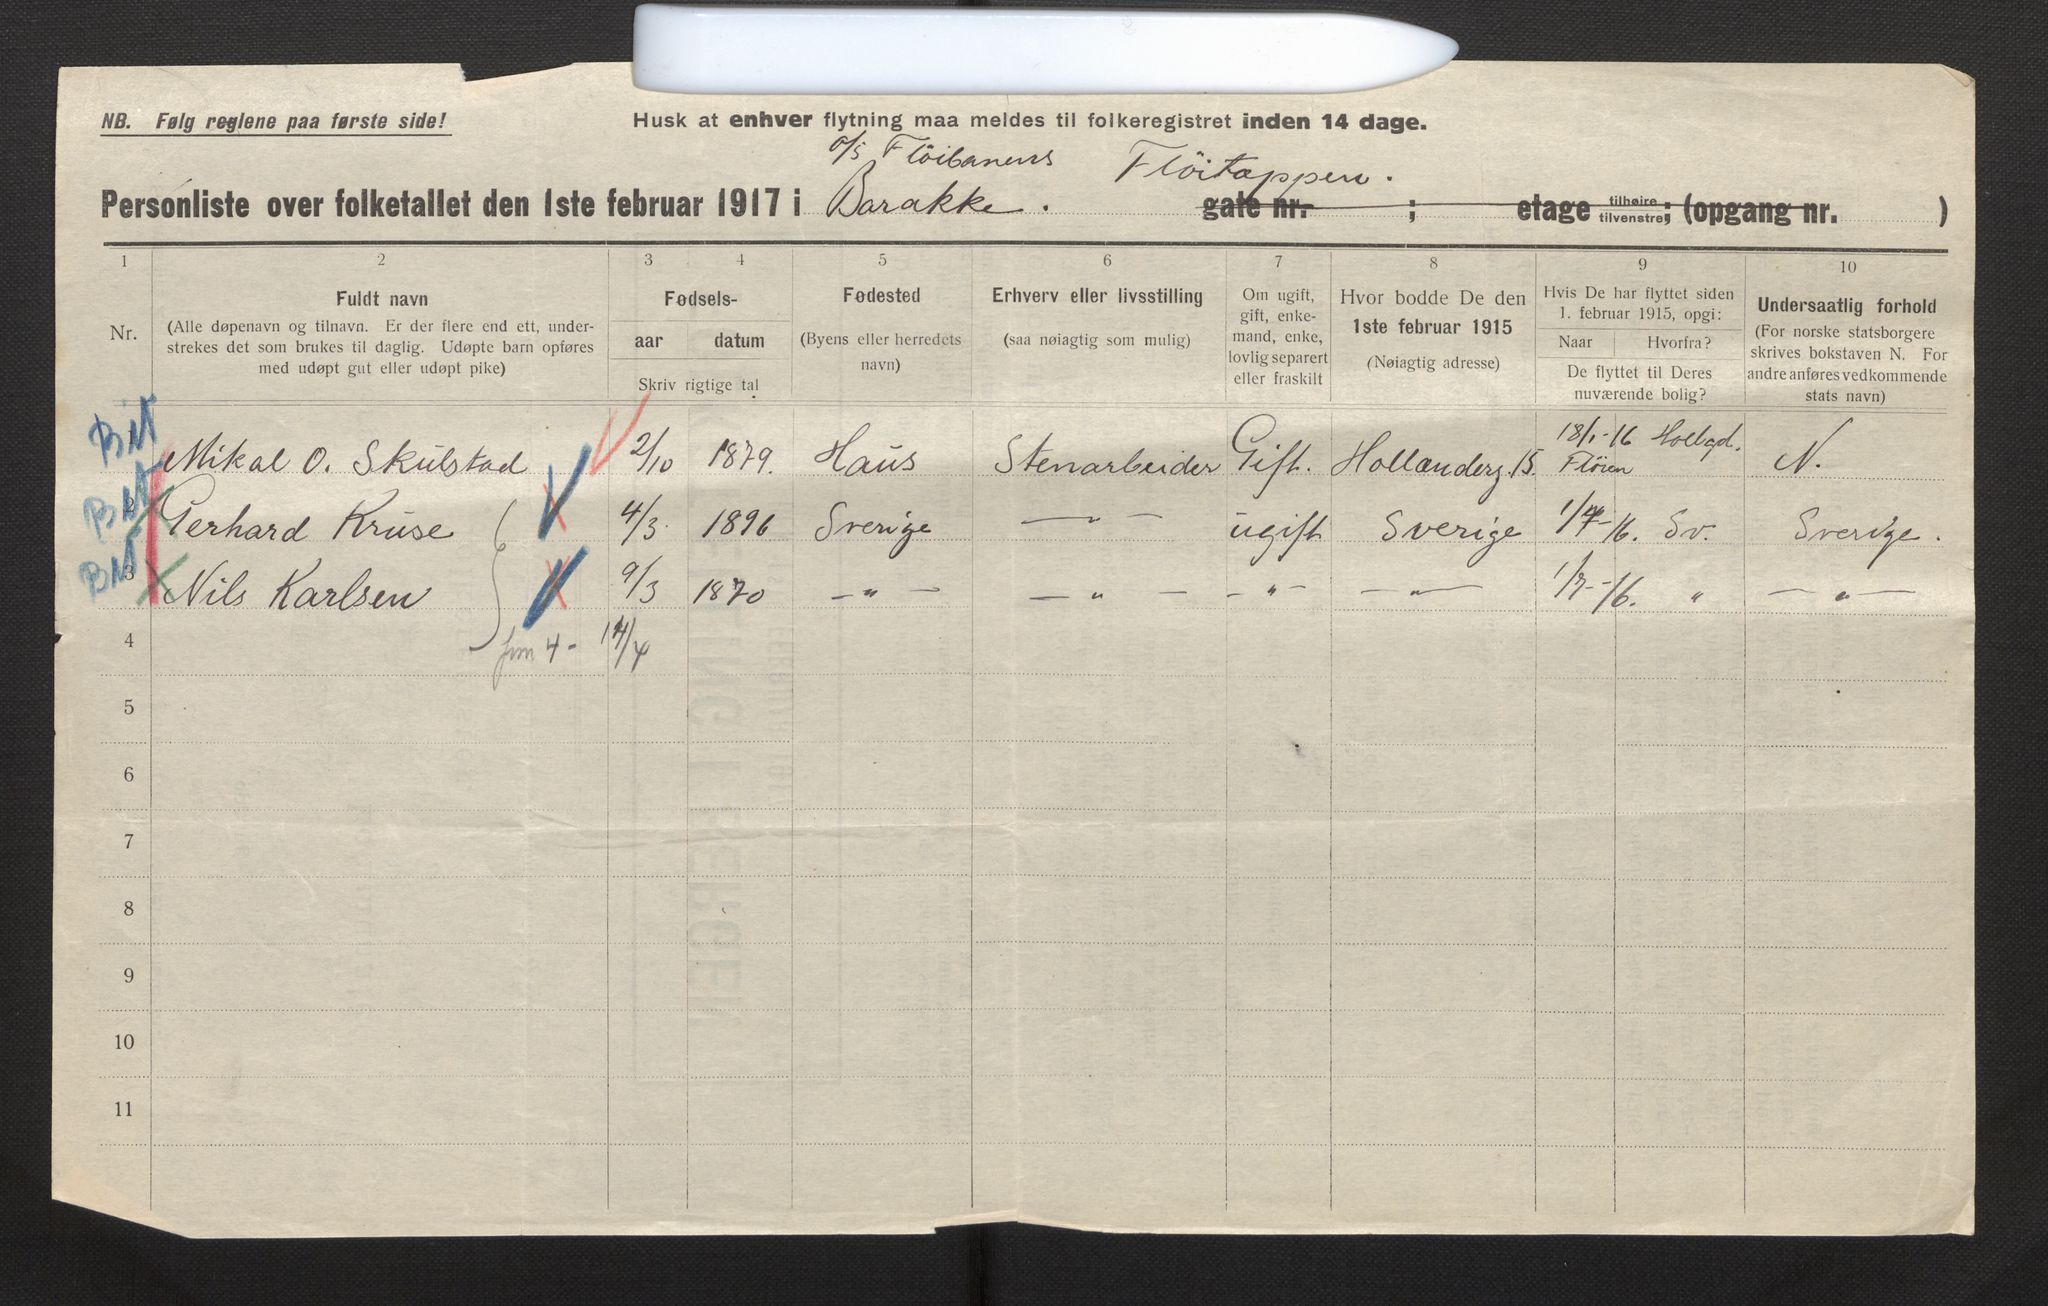 NB. Følg reglene paa første side!
Husk at enhver flytning maa meldes til folkeregistret inden 14 dage.
Fløibanens Fløitappen.
Personliste over folketallet den 1ste februar 1917 i Barakke. gate nr. ; etage tilhøire tilvenstre; (opgang nr. )
1 2 3 4 5 6 7 8 9 10
Nr.
Fuldt navn
(Alle døpenavn og tilnavn. Er der flere end ett, under-
strekes det som brukes til daglig. Udøpte barn opføres
med udøpt gut eller udøpt pike)
Fødsels-
aar datum
Skriv rigtige tal
Fødested
(Byens eller herredets
navn)
Erhverv eller livsstilling
(saa nøiagtig som mulig)
Om ugift,
gift, enke-
mand, enke,
lovlig separert
eller fraskilt
Hvor bodde De den
1ste februar 1915
(Nøiagtig adresse)
Hvis De har flyttet siden
1. februar 1915, opgi:
Naar Hvorfra?
De flyttet til Deres
nuværende bolig?
Undersaatlig forhold
(For norske statsborgere
skrives bokstaven N. For
andre anføres vedkommende
stats navn)
1 Mikal O. Skulstad 2/10 1879. Haus Stenarbeider Gift. Hollænderg. 15. 18/1-16 Fløien Hollgd. N.
2 Gerhard Kruse 4/3. 1896 Sverige —„— ugift Sverige 1/7-16. Sv. Sverige.
3 Nils Karlsen 9/3 1870 —„— —„— —„— —„— 1/7-16. „ —„—
4 14/4
5
6
7
8
9
10
11